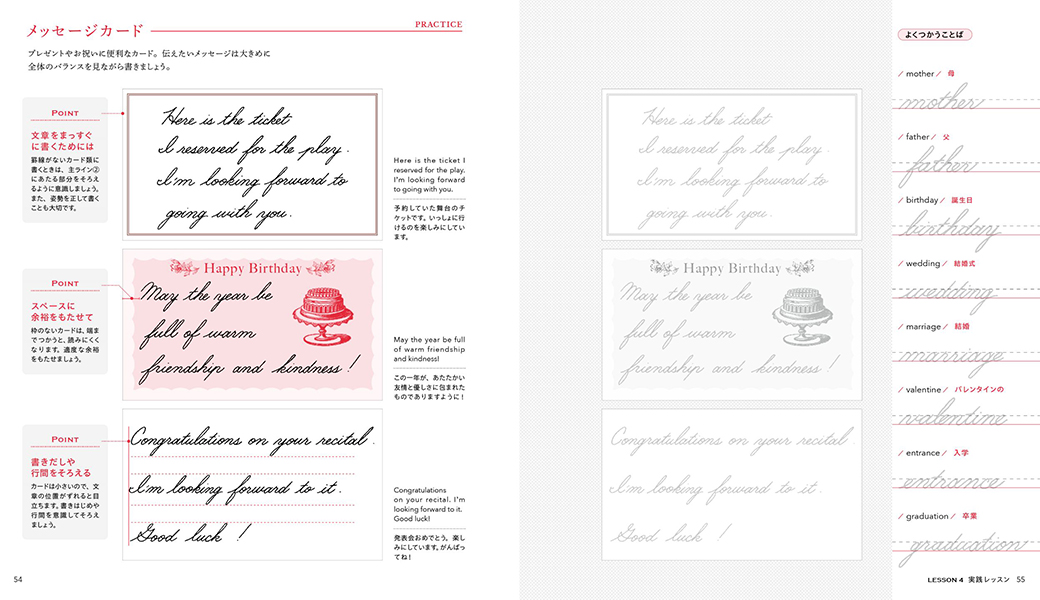 メッセージカード
PRACTICE
プレゼントやお祝いに便利なカード。伝えたいメッセージは大きめに
全体のバランスを見ながら書きましょう。
POINT
文章をまっすぐ
に書くためには
罫線がないカード類に
書くときは、主ライン②
にあたる部分をそろえ
るように意識しましょう。
また、姿勢を正して書く
ことも大切です。
Here is the ticket
I reserved for the play.
I'm looking forward to
going with you.
Here is the ticket I
reserved for the play.
I'm looking forward
to going with you.
予約していた舞台のチ
ケットです。いっしょに行
けるのを楽しみにしてい
ます。
POINT
スペースに
余裕をもたせて
枠のないカードは、端ま
でつかうと、読みにくく
なります。適度な余裕
をもたせましょう。
Happy Birthday
May the year be
full of warm
friendship and kindness!
May the year be full
of warm friendship
and kindness!
この一年が、あたたかい
友情と優しさに包まれた
ものでありますように!
POINT
書きだしや
行間をそろえる
カードは小さいので、文
章の位置がずれると目
立ちます。書きはじめや
行間を意識してそろえ
ましょう。
Congratulations on your recital.
I'm looking forward to it.
Good luck !
Congratulations
on your recital. I'm
looking forward to it.
Good luck!
発表会おめでとう。楽し
みにしています。がんばっ
てね!
54
Here is the ticket
I reserved for the play.
I'm looking forward to
going with you.
Happy Birthday
May the year be
full of warm
friendship and kindness!
Congratulations on your recital
I'm looking forward to it.
Good luck !
よくつかうことば
/ mother / 母
mother
/ father / 父
father
/ birthday / 誕生日
birthday
/ wedding / 結婚式
wedding
/ marriage / 結婚
marriage
/ valentine / バレンタインの
valentine
/ entrance / 入学
entrance
/ graduation / 卒業
graduation
LESSON 4 実践レッスン 55